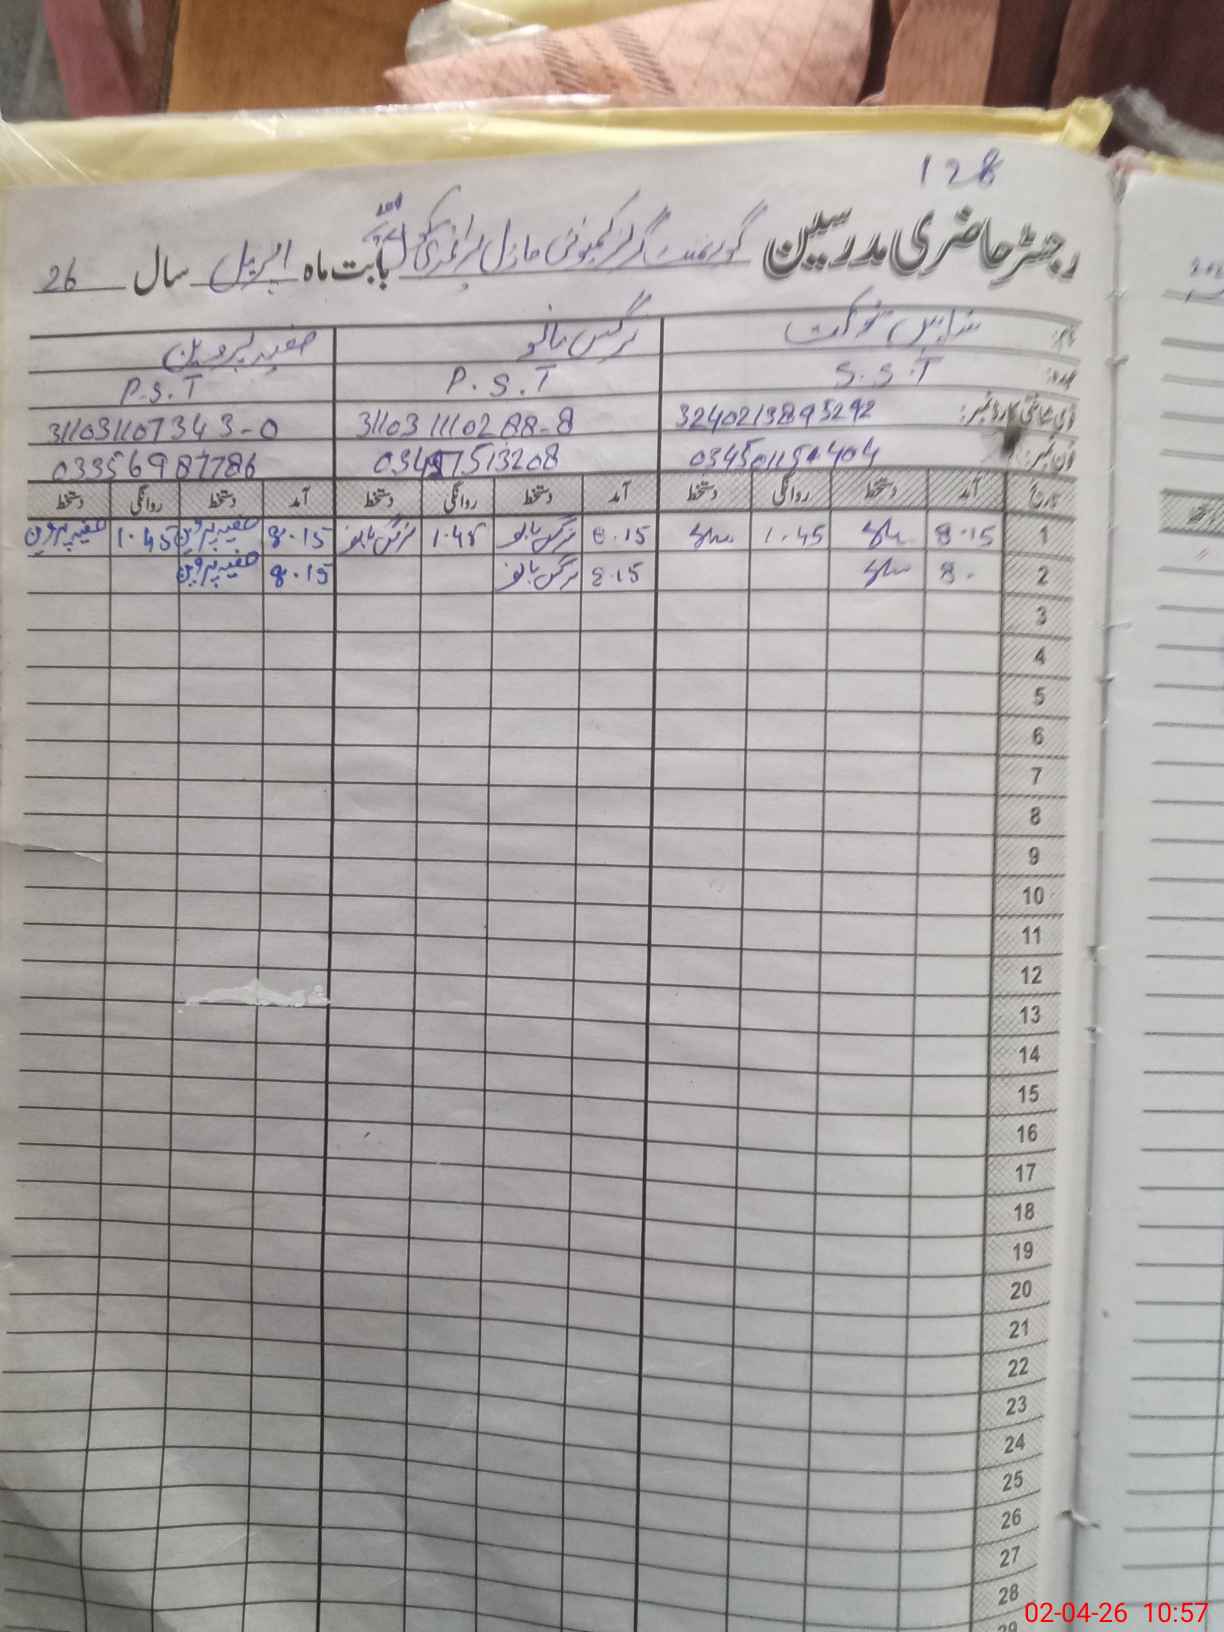 128
رجسٹر حاضری مدرسین گورنمنٹ گرلز کمیونٹی ماڈل پرائمری سکول بابت ماہ اپریل سال 26
نام: شوکت نرگس بانو صفیہ پروین
عہدہ: S.S.T P.S.T P.S.T
قومی شناختی کارڈ نمبر: 3240213895292 31103 1110288-8 311031107343-0
فون نمبر: 03457513208 03356987786
تاریخ آمد دستخط روانگی دستخط آمد دستخط روانگی دستخط آمد دستخط روانگی دستخط
1 8.15 1.45 8.15 نرگس بانو 1.45 نرگس بانو 8.15 صفیہ پروین 1.45 صفیہ پروین
2 8. 8.15 نرگس بانو 8.15 صفیہ پروین
3
4
5
6
7
8
9
10
11
12
13
14
15
16
17
18
19
20
21
22
23
24
25
26
27
28
29
02-04-26 10:57